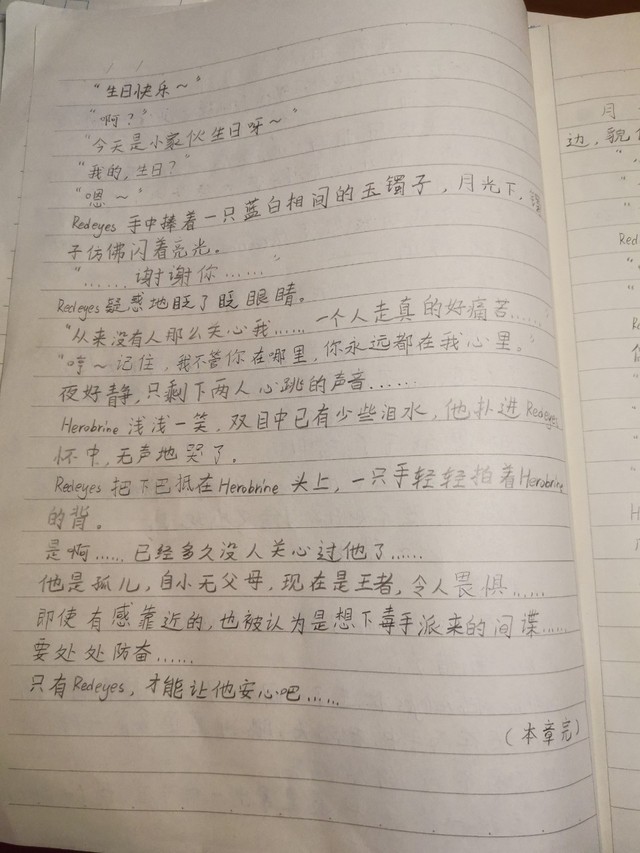 “生日快乐～”
“啊？”
“今天是小家伙生日呀～”
“我的，生日？”
“嗯～”
Redeyes 手中捧着一只蓝白相间的玉镯子，月光下，镯
子仿佛闪着亮光。
“……谢谢你……”
Redeyes疑惑地眨了眨眼睛。
“从来没有人那么关心我……一个人走真的好痛苦……”
“哼～记住，我不管你在哪里，你永远都在我心里。”
夜好静，只剩下两人心跳的声音……
Herobrine 浅浅一笑，双目中已有少些泪水，他扑进Redeyes
怀中，无声地哭了。
Redeyes 把下巴抵在Herobrine 头上，一只手轻轻拍着Herobrine
的背。
是啊……已经多久没人关心过他了……
他是孤儿，自小无父母，现在是王者，令人畏惧……
即使有感靠近的，也被认为是想下毒手派来的间谍……
要处处防奋……
只有Redeyes，才能让他安心吧……
（本章完）
月
边，貌
Red